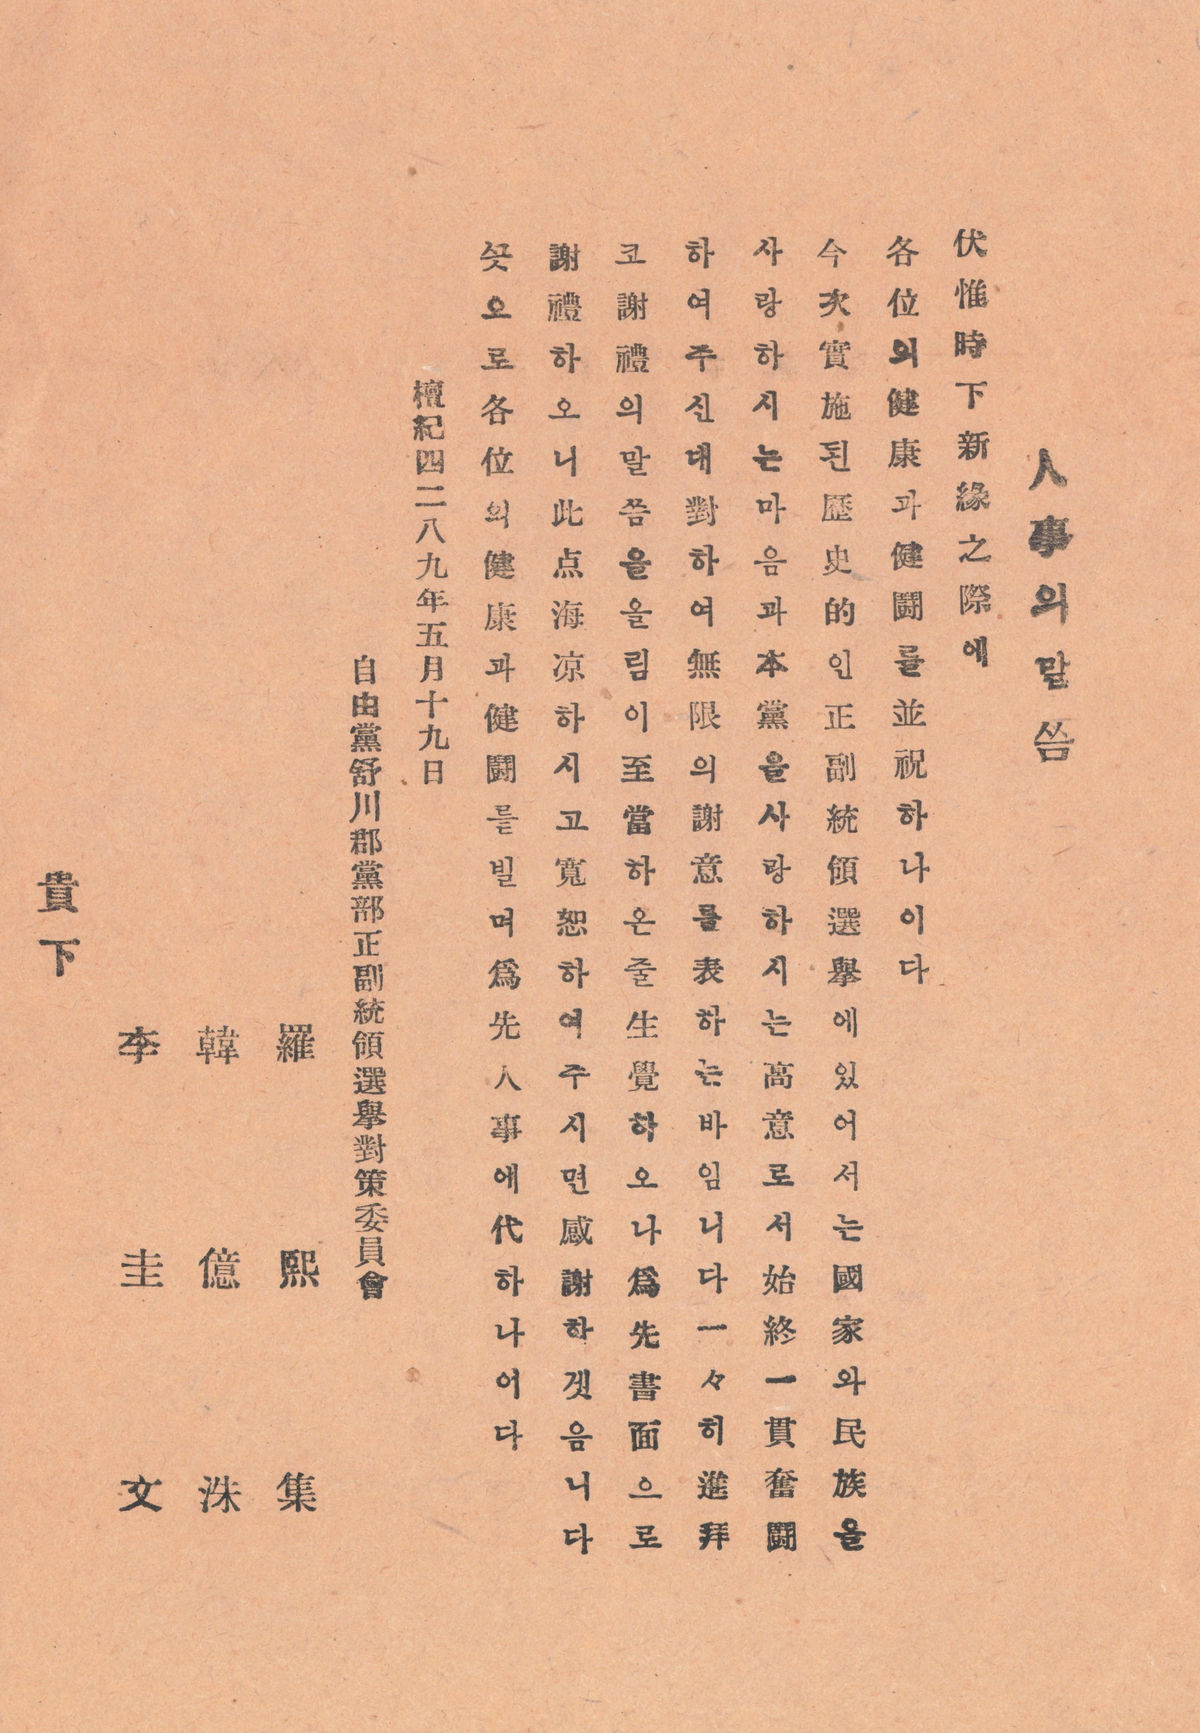 人事의말씀
伏惟時下新緣之際에
各位의健康과健闘를並祝하나이다
今次實施된歷史的인正副統領選擧에있어서는國家와民族을
사랑하시는마음과本黨을사랑하시는高意로서始終一貫奮闘
하여주신대對하여無限의謝意를表하는바임니다一々히進拜
코謝禮의말쯤을올림이至當하온줄生覺하오나爲先書面으로
謝禮하오니此点海凉하시고寬恕하여주시면感謝하겟음니다
끗오로各位의健康과健闘를빌며爲先人事에代하나어다
檀紀四二八九年五月十九日
自由黨舒川郡黨部正副統領選擧對策委員會
羅熙集
韓億洙
李圭文
貴下